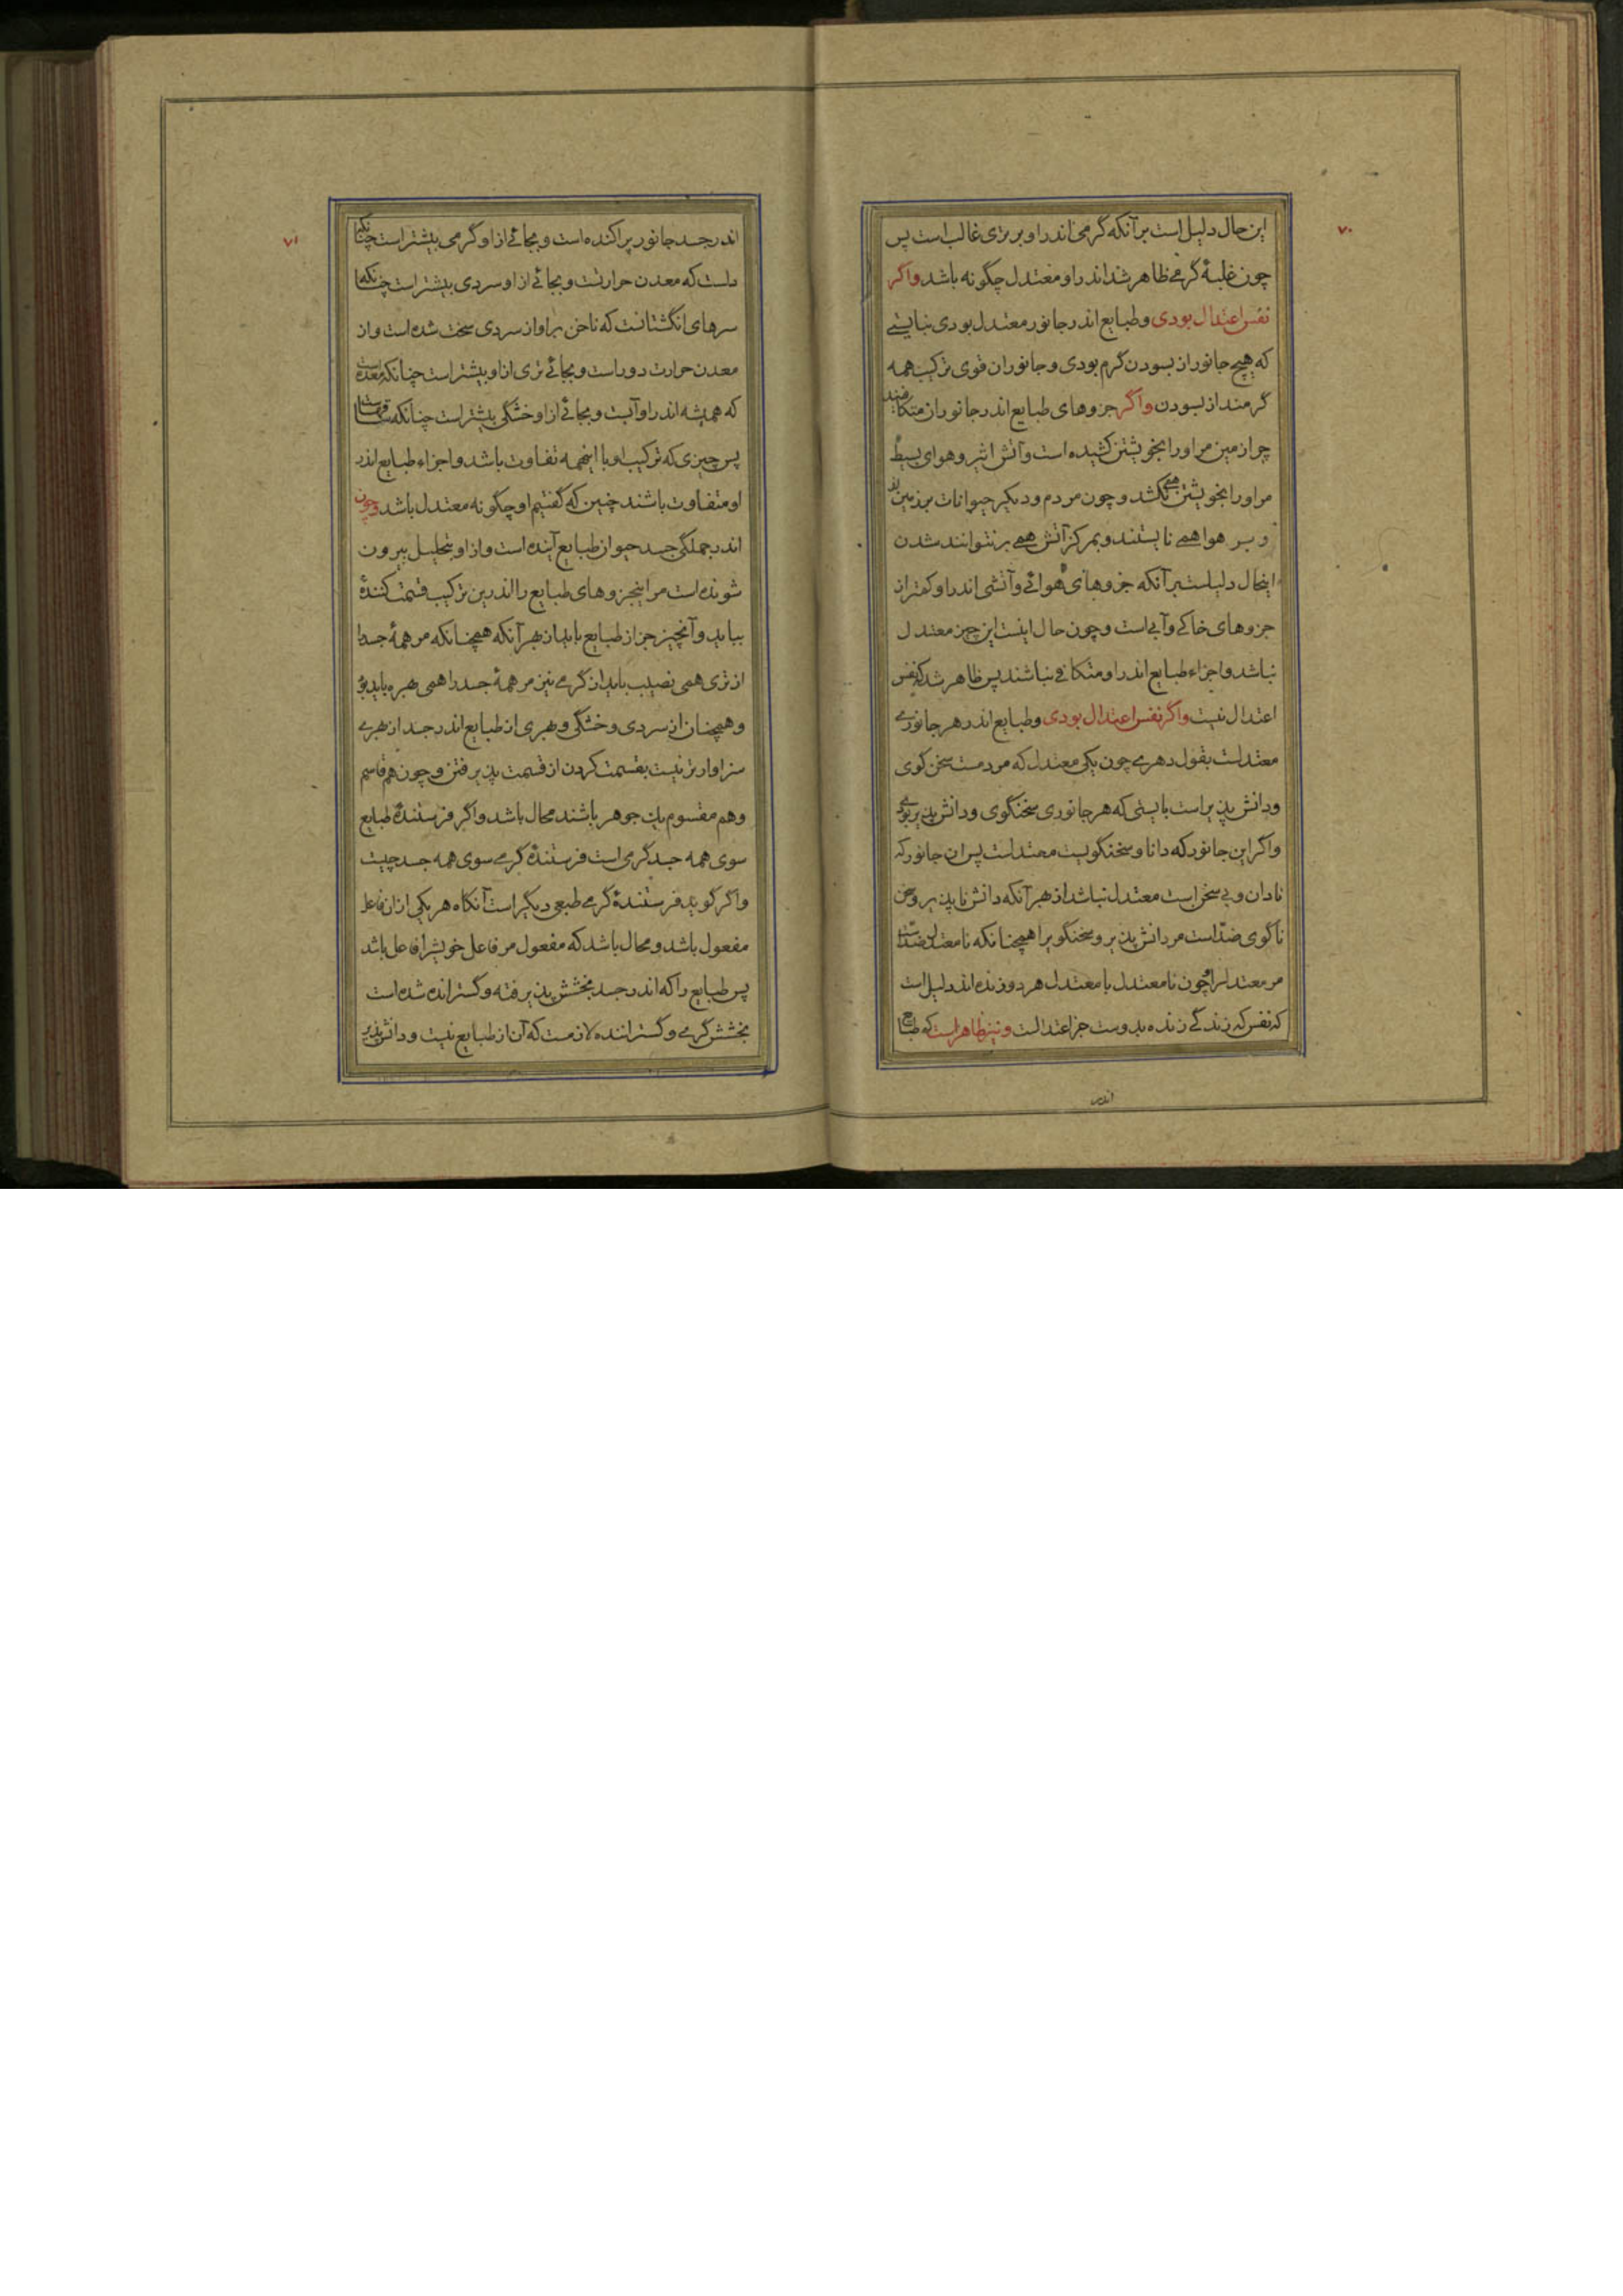 ۷۰
این حال دلیل است بر آنکه گرمی اندر او بر تری غالب است پس
چون غلبهٔ گرمی ظاهر شد اندر او معتدل چگونه باشد واگر
نفس اعتدال بودی وطبایع اندر جانور معتدل بودی نبایستی
که هیچ جانور از بسودن گرم بودی و جانوران قوی ترکیب همه
گرمند از بسودن واگر جزوهای طبایع اندر جانوران متکافیند
چرا زمین مر اورا بخویشتن کشیده است وآتش اثیر وهوای بسیط
مر اورا بخویشتن همی نکشد و چون مردم ودیگر حیوانات بر زمین اند
و بر هوا همی نایستند وبمرکز آتش همی بر نتوانند شدن
اینحال دلیلست بر آنکه جزوهای هوائی وآتشی اندر او کمتر از
جزوهای خاکی وآبی است وچون حال اینست این چیز معتدل
نباشد واجزاء طبایع اندر او متکافی نباشند پس ظاهر شد که نفس
اعتدال نیست واگر نفس اعتدال بودی وطبایع اندر هر جانوری
معتدلست بقول دهری چون یکی معتدل که مردمست سخن گوی
ودانش پذیر است بایستی که هر جانوری سخنگوی ودانش پذیر بودی
واگر این جانور که دانا وسخنگویست معتدلست پس آن جانور که
نادان وبی سخن است معتدل نباشد از بهر آنکه دانش ناپذیر وسخن
ناگوی ضدّ است مر دانش پذیر وسخنگویرا همچنانکه نامعتدل ضدّ است
مر معتدلرا وچون نامعتدل با معتدل هر دو زنده اند دلیل است
که نفس که زندگی زنده بدوست جز اعتدالست ونیز ظاهر است که طبایع
اندر
۷۱
اندر جسد جانور پراکنده است وبجائی از او گرمی بیشتر است چنانکه
دلست که معدن حرارتست وبجائی از او سردی بیشتر است چنانکه
سرهای انگشتانست که ناخن بر او از سردی سخت شده است واز
معدن حرارت دور است وبجائی تری از او بیشتر است چنانکه معده است
که همیشه اندر او آبست وبجائی از او خشگی بیشتر است چنانکه
پس چیزی که ترکیب او با اینهمه تفاوت باشد واجزاء طبایع اندر
او متفاوت باشند چنین که گفتیم او چگونه معتدل باشد وچون
اندر جملگی جسد حیوان طبایع آینده است واز او بتحلیل بیرون
شونده است مر اینجزوهای طبایع را اندرین ترکیب قسمت کنندهٔ
بباید وآنچیز جز از طبایع باید از بهر آنکه همچنانکه مر همهٔ جسد را
از تری همی نصیب باید از گرمی نیز مر همهٔ جسد را همی بهره باید
وهمچنان از سردی وخشگی وبهری از طبایع اندر جسد از بهری
سزاوارتر نیست بقسمت کردن از قسمت پذیرفتن وچون هم قاسم
وهم مقسوم یک جوهر باشند محال باشد واگر فرستندهٔ طبایع
سوی همه جسد گرمی است فرستندهٔ گرمی سوی همه جسد چیست
واگر گوید فرستندهٔ گرمی طبعی دیگر است آنگاه هر یکی از ان فاعل
مفعول باشد ومحال باشد که مفعول مر فاعل خویشرا فاعل باشد
پس طبایع را که اندر جسد بخشش پذیرفته وگسترانده شده است
بخشش گری وگستراننده لازمست که آن از طبایع نیست ودانش پذیر